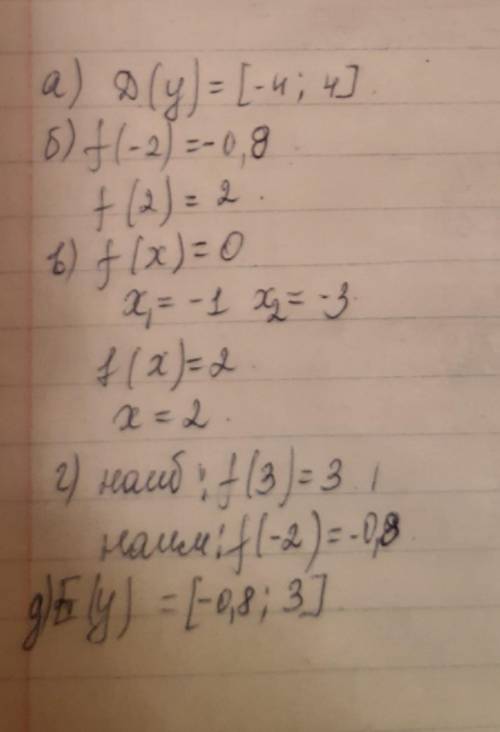 а) D(y) = [-4; 4].
б) f(-2) = -0,8
f(2) = 2.
в) f(x) = 0
x₁ = -1 x₂ = -3.
f(x) = 2
x = 2.
г) наиб: f(3) = 3
наим: f(-2) = -0,8.
д) E(y) = [-0,8; 3]